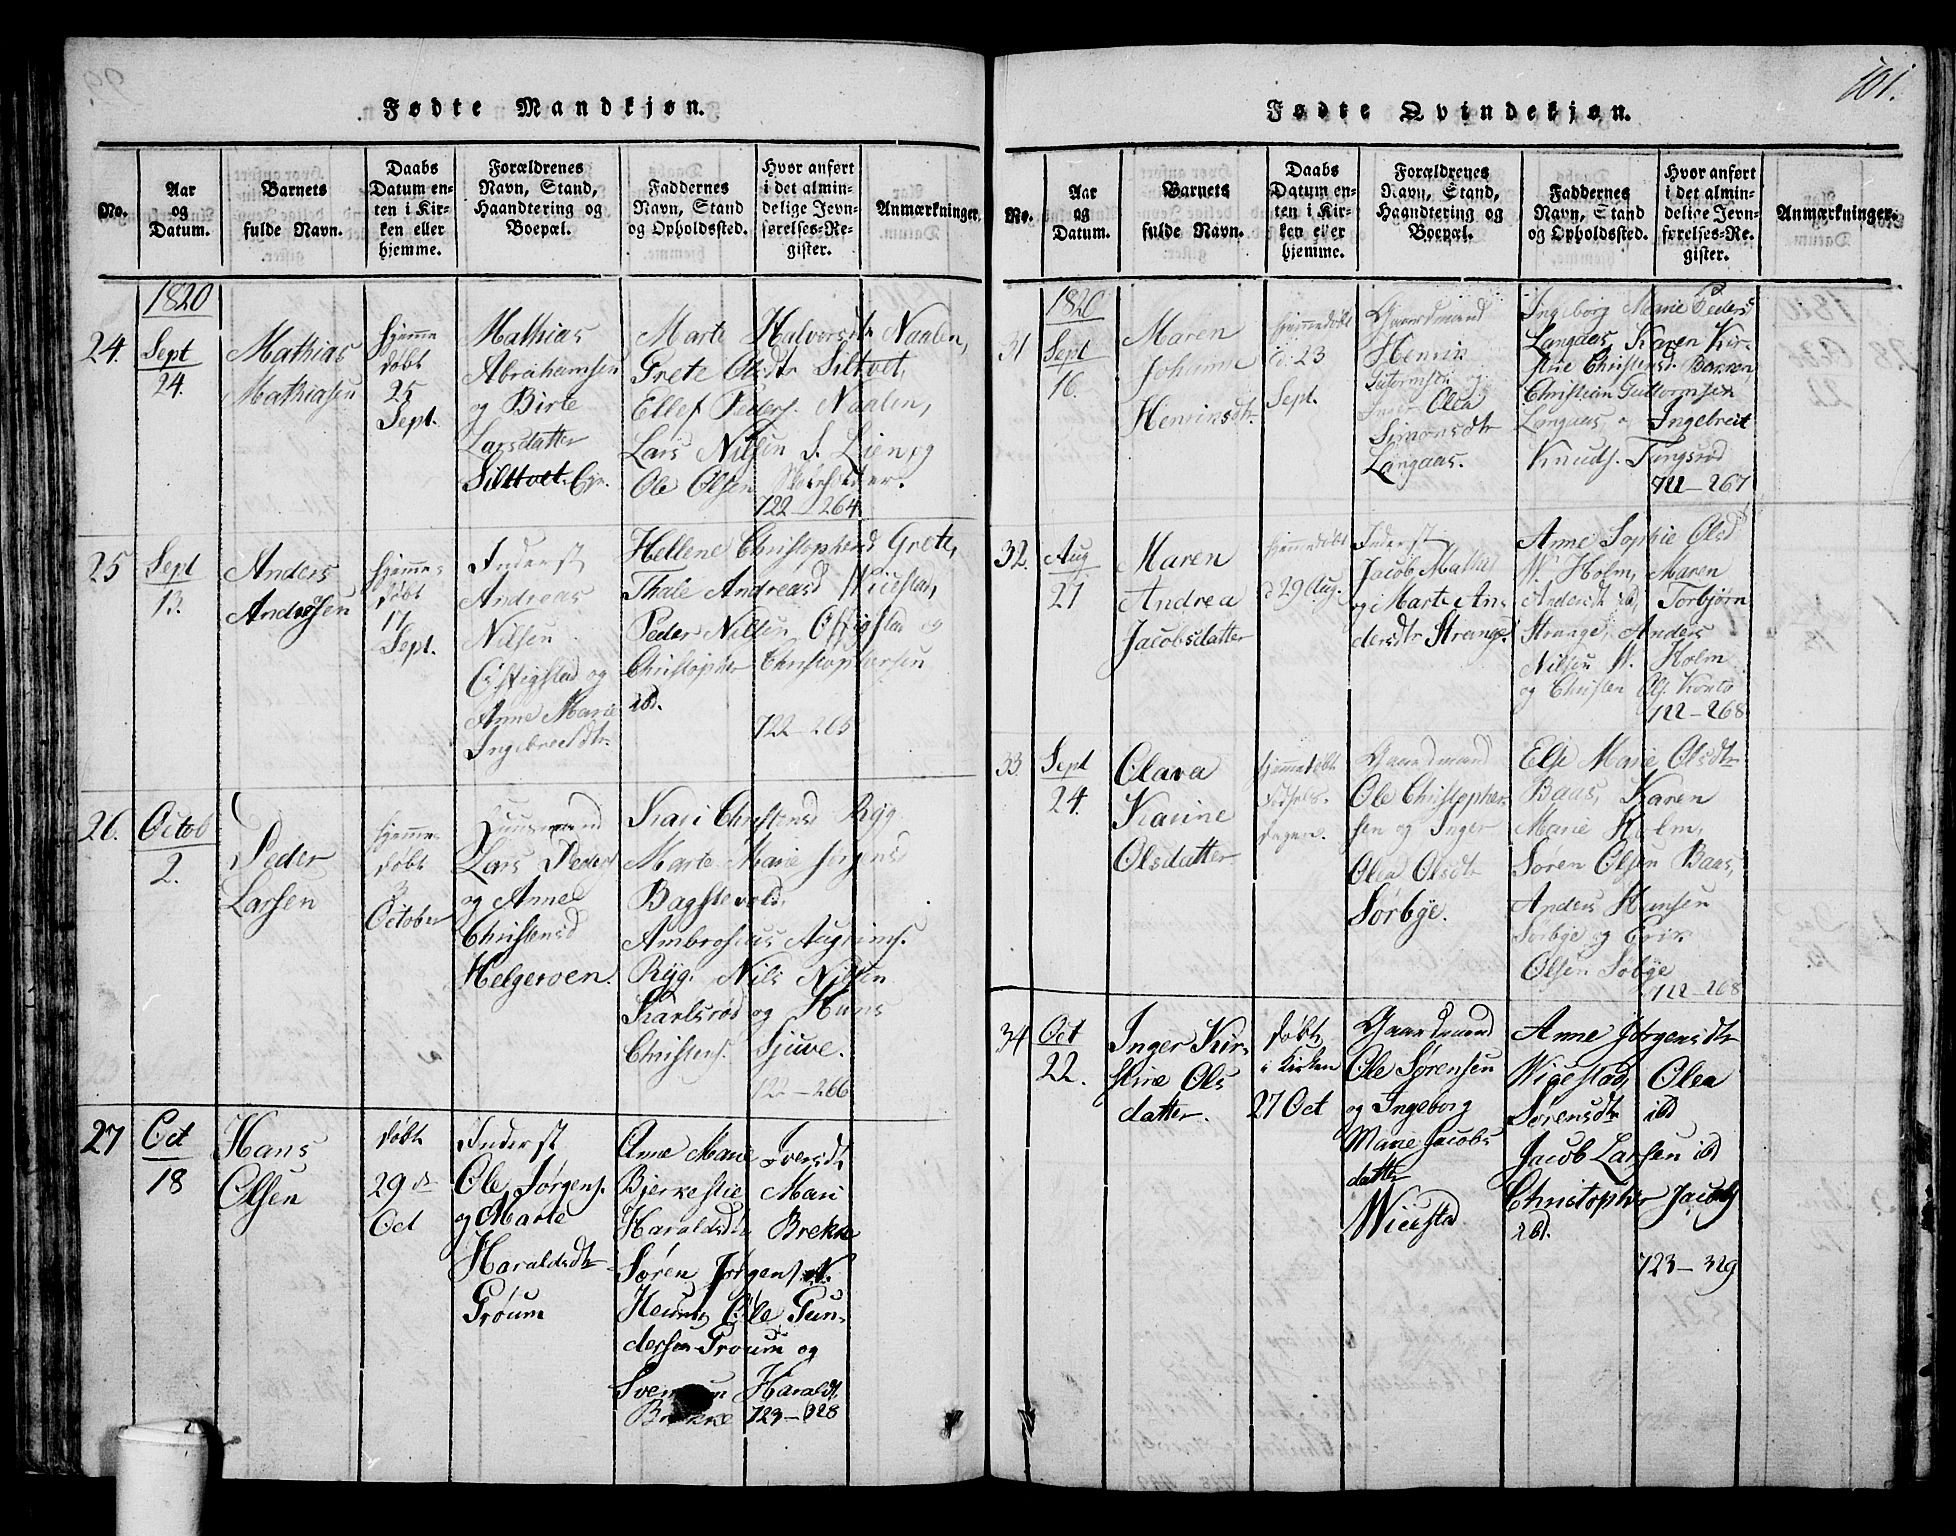 101.
Fødte Mandkjøn.
No.
Aar
og
Datum.
Barnets
fulde Navn.
Daabs
Datum en-
ten i Kir-
ken eller
hjemme.
Forældrenes
Navn, Stand,
Haandtering og
Boepæl.
Faddernes
Navn, Stand
og Opholdssted.
Hvor anført
i det almin-
delige Jevn-
førelses-Re-
gister.
Anmærkninger.
1820
24.
Sept
24.
Mathias
Mathiasen
hjemme
døbt
25
Sept.
Mathias
Abrahamsen
og Birte
Larsdatter
Siltvet. Eje.
Marte Halvorsdtr Naalen,
Grete Olsdtr Siltvet,
Ellef Peders. Naalen,
Lars Nilsen S. Lien og
Ole Olsen
122-264
25
Sept
13
Anders
Andersen
hjemme-
døbt
17
Sept.
Inderst
Andreas
Nilsen
Offigstad og
Anne Marie
Ingebretsdtr
Hellene Christophersd Grete,
Thale Andreasd Wiestad,
Peder Nilsen Offigstad og
Christopher Christophersen
ibd.
122-265
26.
Octob
2.
Peder
Larsen
hjemme-
døbt
3
October
Huusmand
Lars Peders
og Anne
Christensd
Helgeroen.
Kari Christensd Ryg
Marte Marie Jørgensd
Bagstevold.
Ambrosius Augrims.
Ryg. Nils Nilsen
Karlsrød og Hans
Christens. Sjuve.
122-266
27
Oct
18
Hans
Olsen
døbt
29 de
Oct
Inderst
Ole Jørgens.
og Marte
Haraldsdtr
Groum
Anne Marie Iversdtr
Bjerkestie Mari
Haraldsdtr Brekke
Søren Jørgens. N.
Heum, Ole Gun-
dersen Groum og
Haralds.
Brekke 123-328
Fødte Qvindekjøn.
No.
Aar
og
Datum.
Barnets
fulde Navn.
Daabs
Datum en-
ten i Kir-
ken eller
hjemme.
Forældrenes
Navn, Stand,
Haandtering og
Boepæl.
Faddernes
Navn, Stand
og Opholdssted.
Hvor anført
i det almin-
delige Jevn-
førelses-Re-
gister.
Anmærkninger.
1820
31
Sept
16.
Maren
Johanne
Henriksdtr
hjemmedøbt
d: 23
Sept.
Gaardmand
Henrik
Guttormsen og
Inger Olea
Simonsdtr
Langaas.
Ingeborg Marie Peders
Langaas, Karen Kir-
stine Christensd. Barren,
Christian Guttormsen
Langaas og Ingebreit
Knuds. Tungsrød
122-267
32.
Aug
21
Maren
Andrea
Jacobsdatter
hjemmedøbt
d 29 Aug.
Inderst
Jacob Matias
og Marte An-
dersdtr Strange.
Anne Sophie Olsd
W. Holm, Maren
Andersdt ibd, Torbjørn
Strange, Anders
Nilsen W. Holm
og Christen Ols. Konto
122-268
33.
Sept
24
Olava
Karine
Olsdatter
hjemmedøbt
Fødsels-
dagen.
Gaardmand
Ole Christopher-
sen og Inger
Olea Olsdtr
Sørbye.
Else Marie Olsdtr
Baas, Karen
Marie Holm,
Søren Olsen Baas,
Anders Hansen
Sørbye og Erik
Olsen Søbye
122-268
34
Oct
22.
Inger Kir-
stine Ols
datter.
døbt
i Kirken
27 Oct
Gaardmand
Ole Sørensen
og Ingeborg
Marie Jacobs
datter
Wiestad
Anne Jørgensdtr
Wigestad, Olea
Sørensdtr ibd
Jacob Larsen ibd
Christopher Jacobs
ibd.
123-329